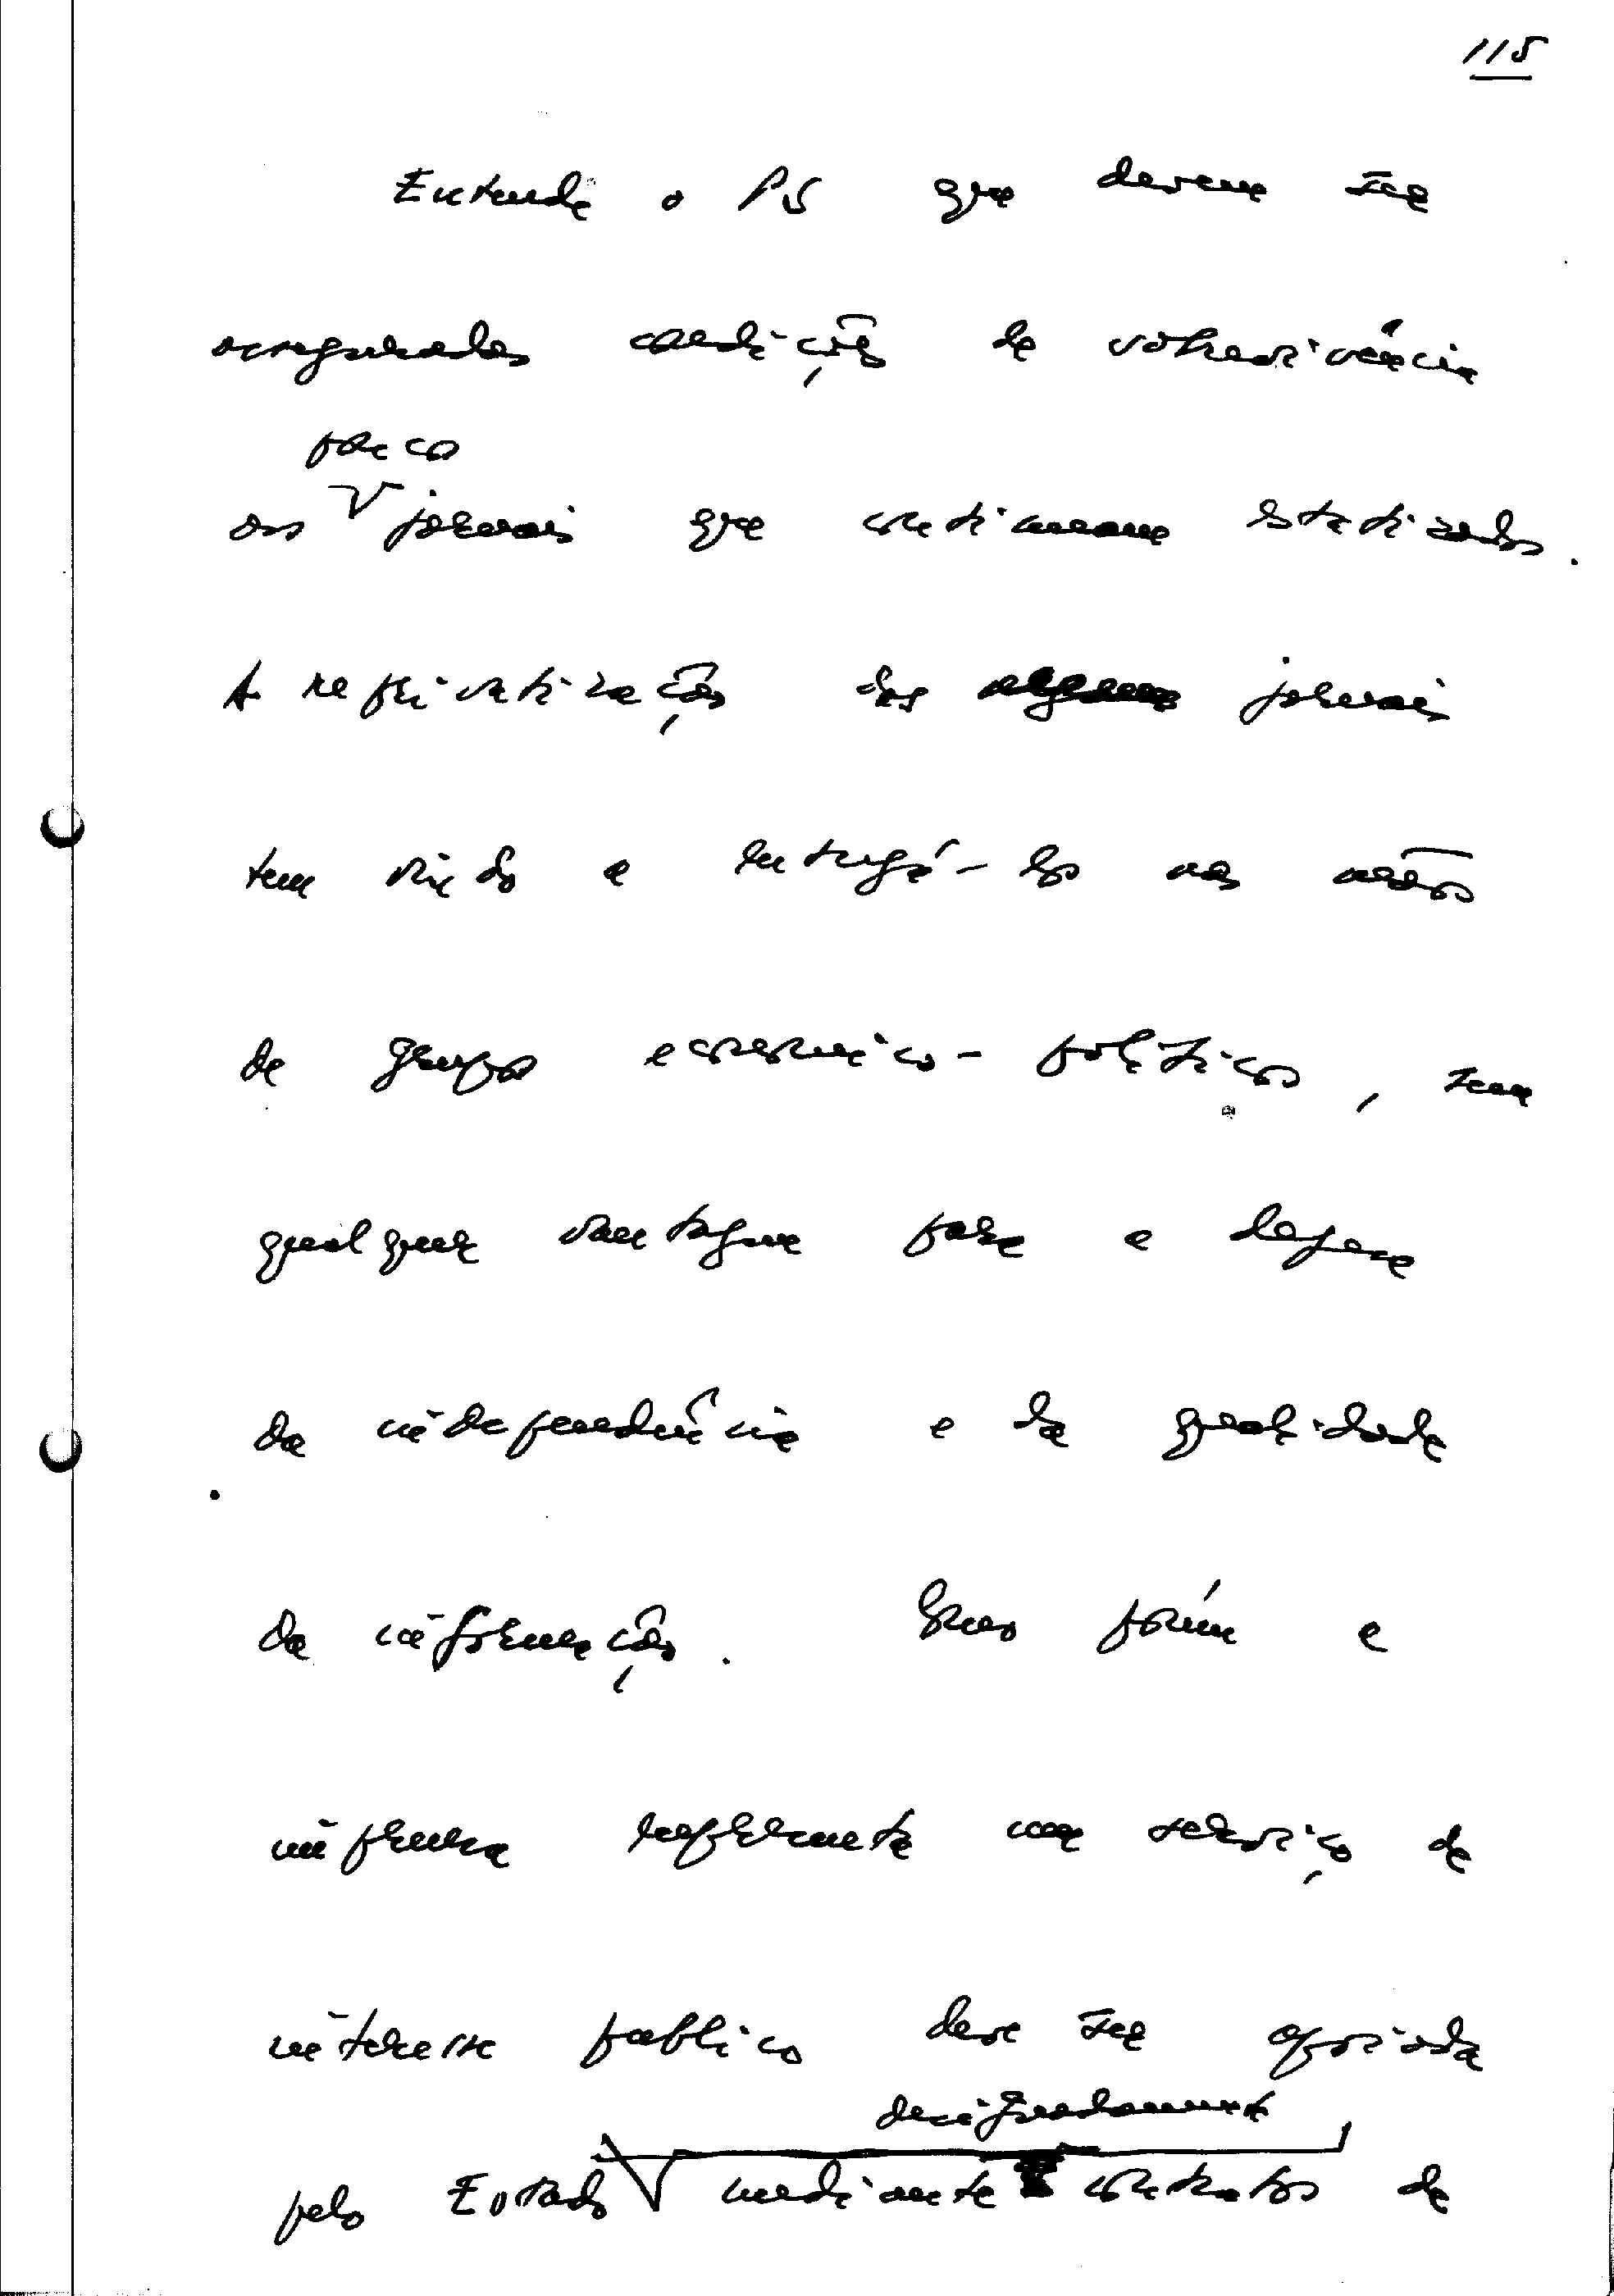 115
Entende o PS que devem ser
asseguradas condições de sobrevivência
poucos
aos jornais que continuam estatizados.
A reprivatização dos jornais
tem vindo a entregá-los nas mãos
de grupos económico-políticos, sem
qualquer vantagem para a defesa
da independência e da qualidade
da informação. Mas porém a
imprensa representa um serviço de
interesse público deve ser apoiada
designadamente
pelo Estado mediante contratos de